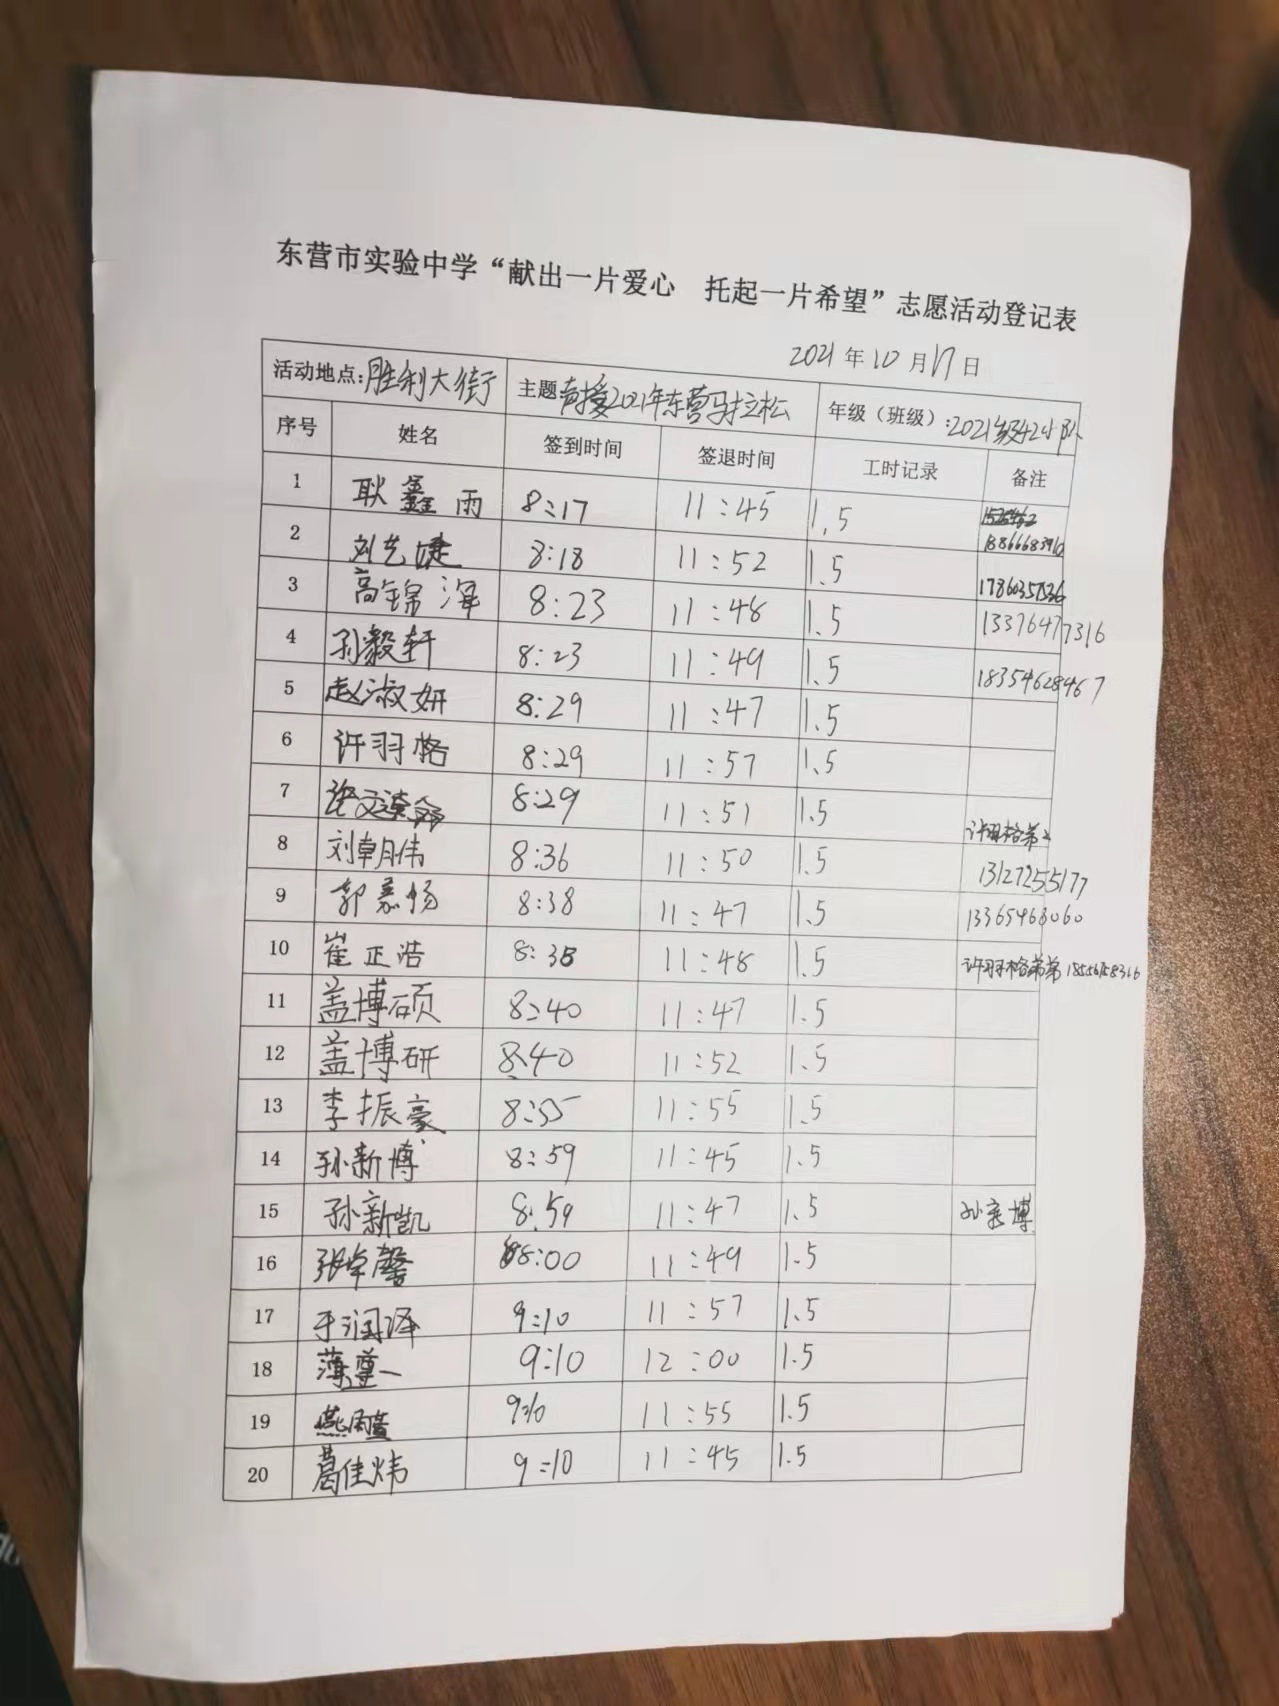 东营市实验中学“献出一片爱心 托起一片希望”志愿活动登记表
2021年10月17日
活动地点:胜利大街 主题 2021年东营马拉松 年级（班级）:2021级42小队
序号 姓名 签到时间 签退时间 工时记录 备注
1 耿鑫雨 8:17 11:45 1.5 18866683910
2 刘艺婕 8:18 11:52 1.5
3 高锦泽 8:23 11:48 1.5 13376477316
4 孙毅轩 8:23 11:49 1.5 18354628467
5 赵淑妍 8:29 11:47 1.5
6 许羽格 8:29 11:57 1.5
7 8:29 11:51 1.5 许羽格弟
8 刘朝伟 8:36 11:50 1.5 13127255177
9 郭慕杨 8:38 11:47 1.5 13365468060
10 崔正浩 8:38 11:48 1.5 许羽格弟弟
11 盖博硕 8:40 11:47 1.5
12 盖博研 8:40 11:52 1.5
13 李振豪 8:55 11:55 1.5
14 孙新博 8:59 11:45 1.5
15 孙新凯 8:59 11:47 1.5 孙新博
16 张卓馨 8:00 11:49 1.5
17 于润泽 9:10 11:57 1.5
18 薄董一 9:10 12:00 1.5
19 燕 9:10 11:55 1.5
20 葛佳炜 9:10 11:45 1.5